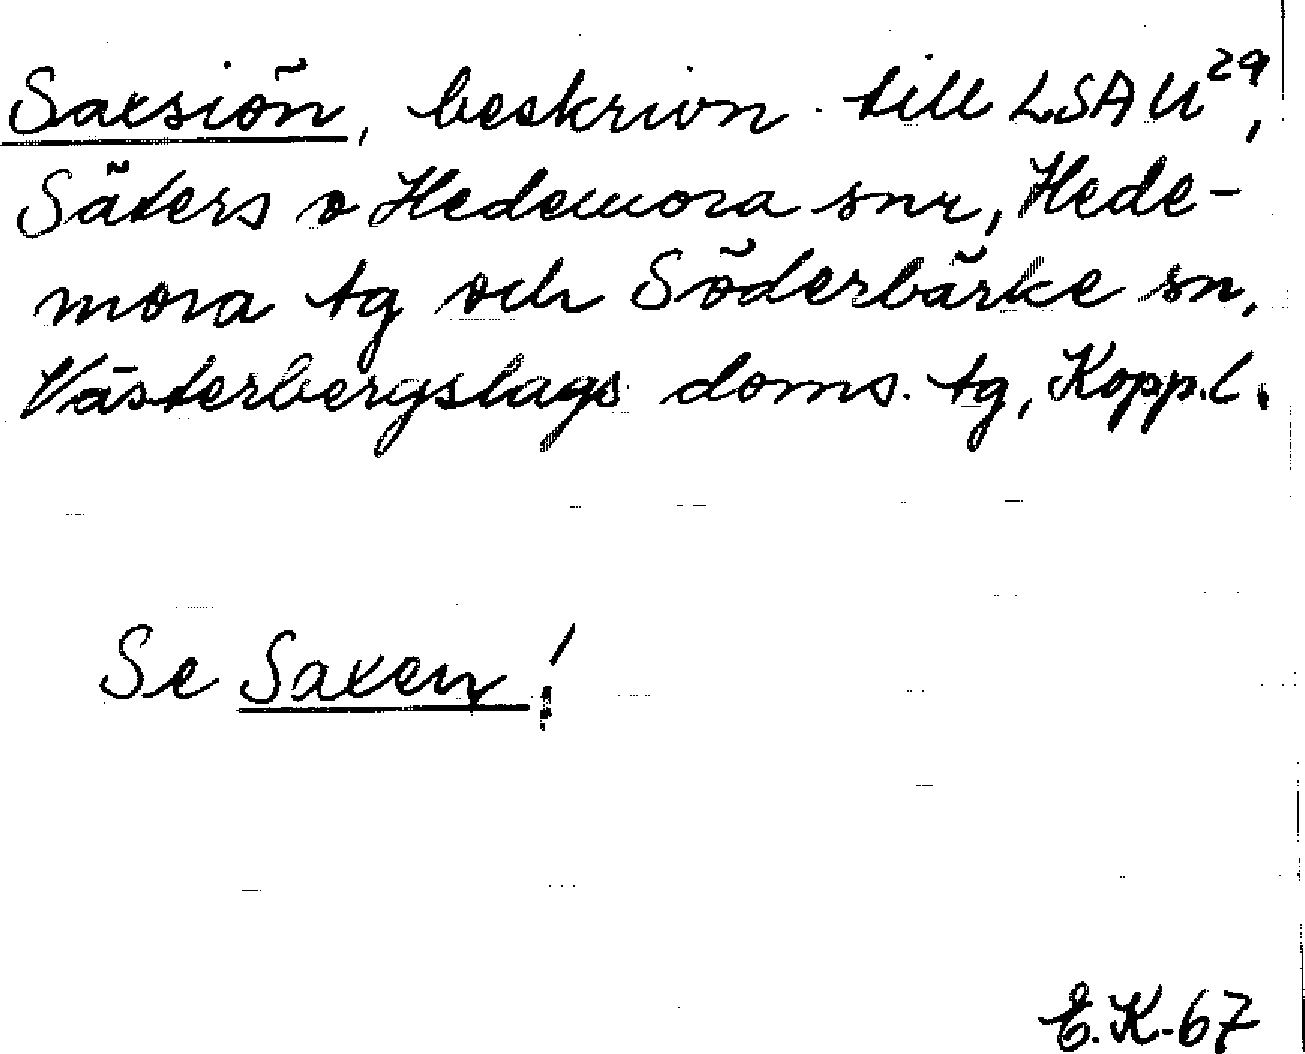 Saxsiön, beskrivn. till LSA U²⁹,
Säters o Hedemora snr, Hede-
mora tg och Söderbärke sn,
Västerbergslags doms. tg, Kopp.l.
Se Saxen!
E.K-67